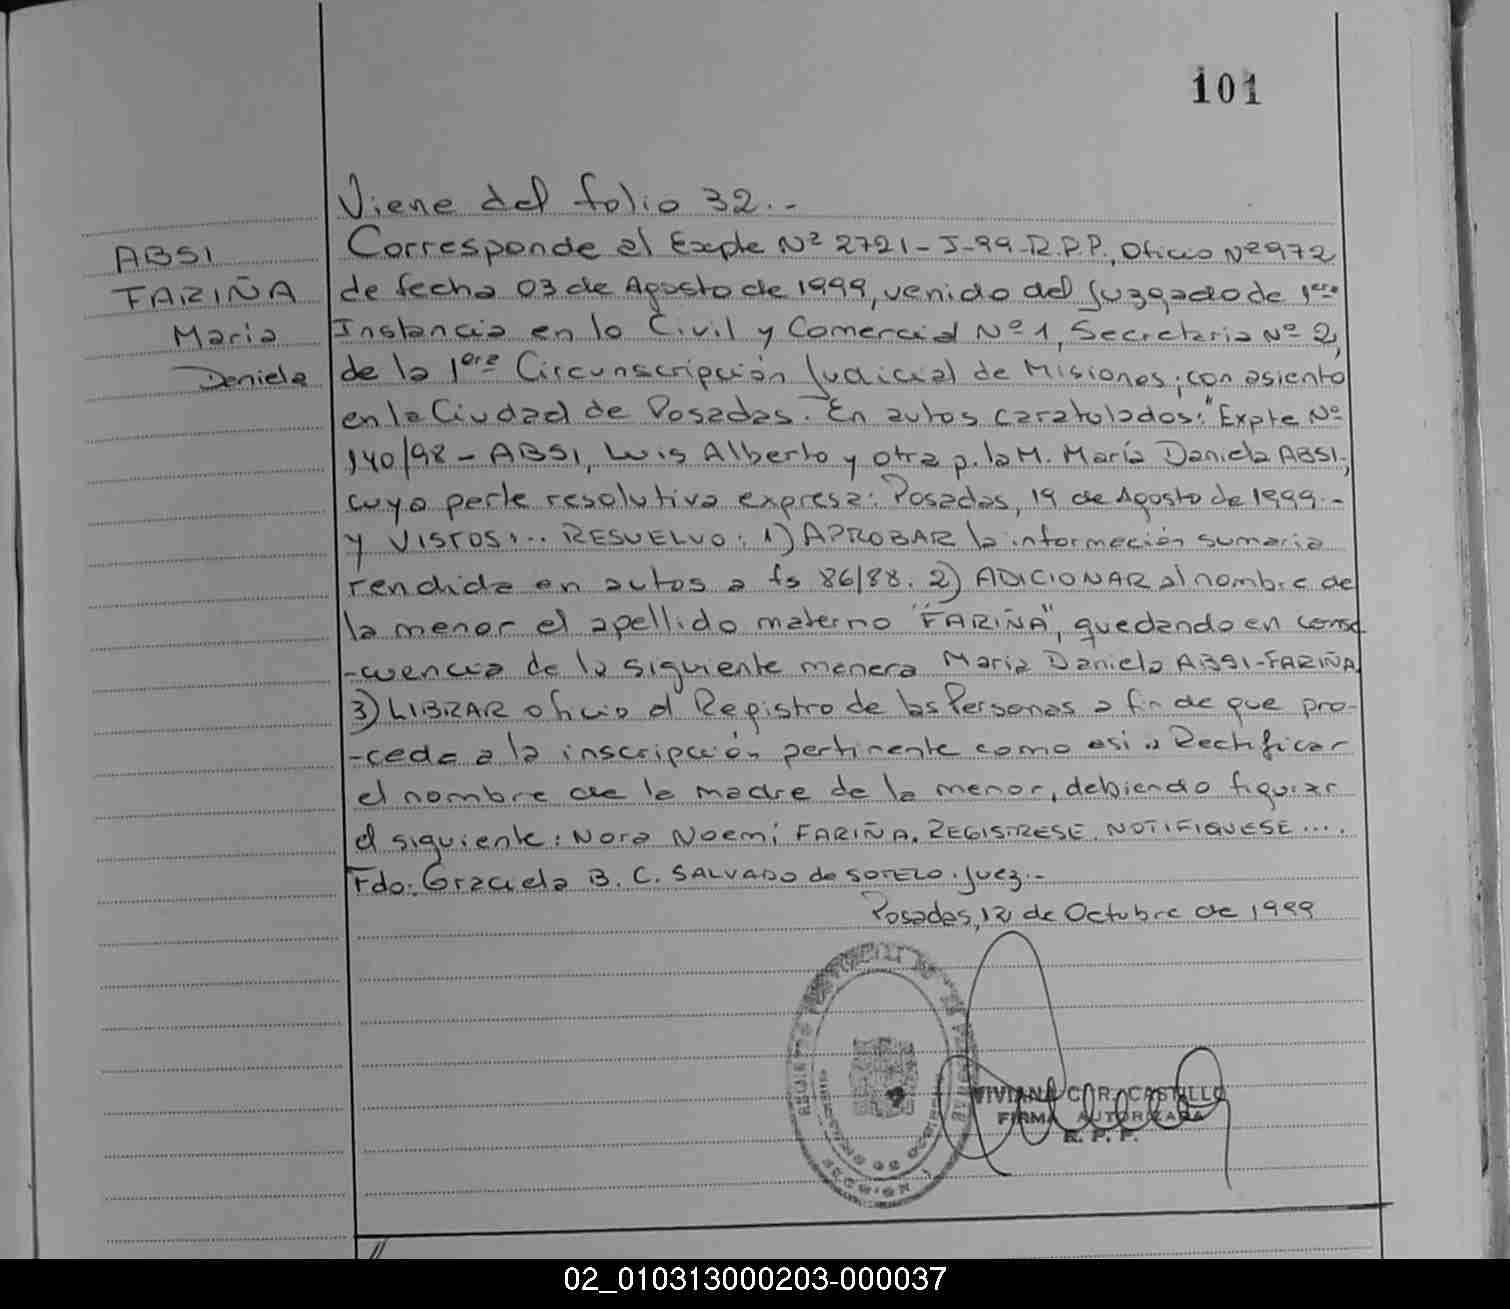 101
Viene del folio 32.-
ABSI
FARIÑA
Maria
Daniela
Corresponde al Expte Nº 2721-J-99-R.P.P., Oficio Nº 972
de fecha 03 de Agosto de 1999, venido del Juzgado de 1era
Instancia en lo Civil y Comercial Nº 1, Secretaria Nº 2,
de la 1era Circunscripción Judicial de Misiones; con asiento
en la Ciudad de Posadas.- En autos caratulados: "Expte Nº
140/98 - ABSI, Luis Alberto y otra p. la M. María Daniela ABSI.,
cuya parte resolutiva expresa: Posadas, 19 de Agosto de 1999.-
y VISTOS:.. RESUELVO: 1) APROBAR la información sumaria
rendida en autos a fs 86/88. 2) ADICIONAR al nombre de
la menor el apellido materno "FARIÑA", quedando en conse
-cuencia de la siguiente manera Maria Daniela ABSI-FARIÑA
3) LIBRAR oficio al Registro de las Personas a fin de que pro-
-ceda a la inscripción pertinente como asi a Rectificar
el nombre de la madre de la menor, debiendo figurar
el siguiente: Nora Noemí FARIÑA. REGISTRESE. NOTIFIQUESE....
Fdo: Graciela B. C. SALVADO de SOTELO. Juez.-
Posadas, 12 de Octubre de 1999
VIVIANA COR. CASTILLO
FIRMA AUTORIZADA
R. P. P.
02_010313000203-000037